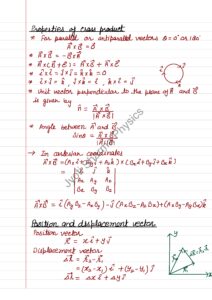 Properties of cross product
* For parallel or antiparallel vectors θ=0° or 180°
A⃗×B⃗=0
* A⃗×B⃗ = -B⃗×A⃗
* A⃗×(B⃗+C⃗) = A⃗×B⃗ + A⃗×C⃗
* î×î = ĵ×ĵ = k̂×k̂ = 0
î×ĵ = k̂, ĵ×k̂ = î, k̂×î = ĵ
* Unit vector perpendicular to the plane of A⃗ and B⃗
is given by
n̂ = A⃗×B⃗
|A⃗×B⃗|
* Angle between A⃗ and B⃗
sinθ = |A⃗×B⃗|
|A⃗||B⃗|
→ In cartesian coordinates
î ĵ k̂
Ax Ay Az
Bx By Bz
Position and displacement vector
Position vector
r⃗ = xî + yĵ
Displacement vector
Δr⃗ = r⃗₂ - r⃗₁
= (x₂-x₁)î + (y₂-y₁)ĵ
Δr⃗ = Δxî + Δyĵ